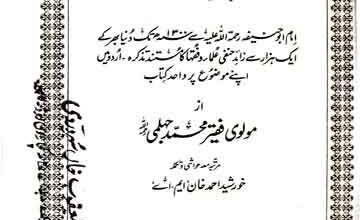 امام ابوحنیفہ رحمۃ اللہ علیہ سے ۱۳۰۰ھ تک دنیا بھر کے
ایک ہزار سے زائد حنفی علماء و فقہا کا مستند تذکرہ - اردو میں
اپنے موضوع پر واحد کتاب
از
مولوی فقیر محمد جہلمی
مرتبہ معہ حواشی و تکملہ
خورشید احمد خان ایم - اے